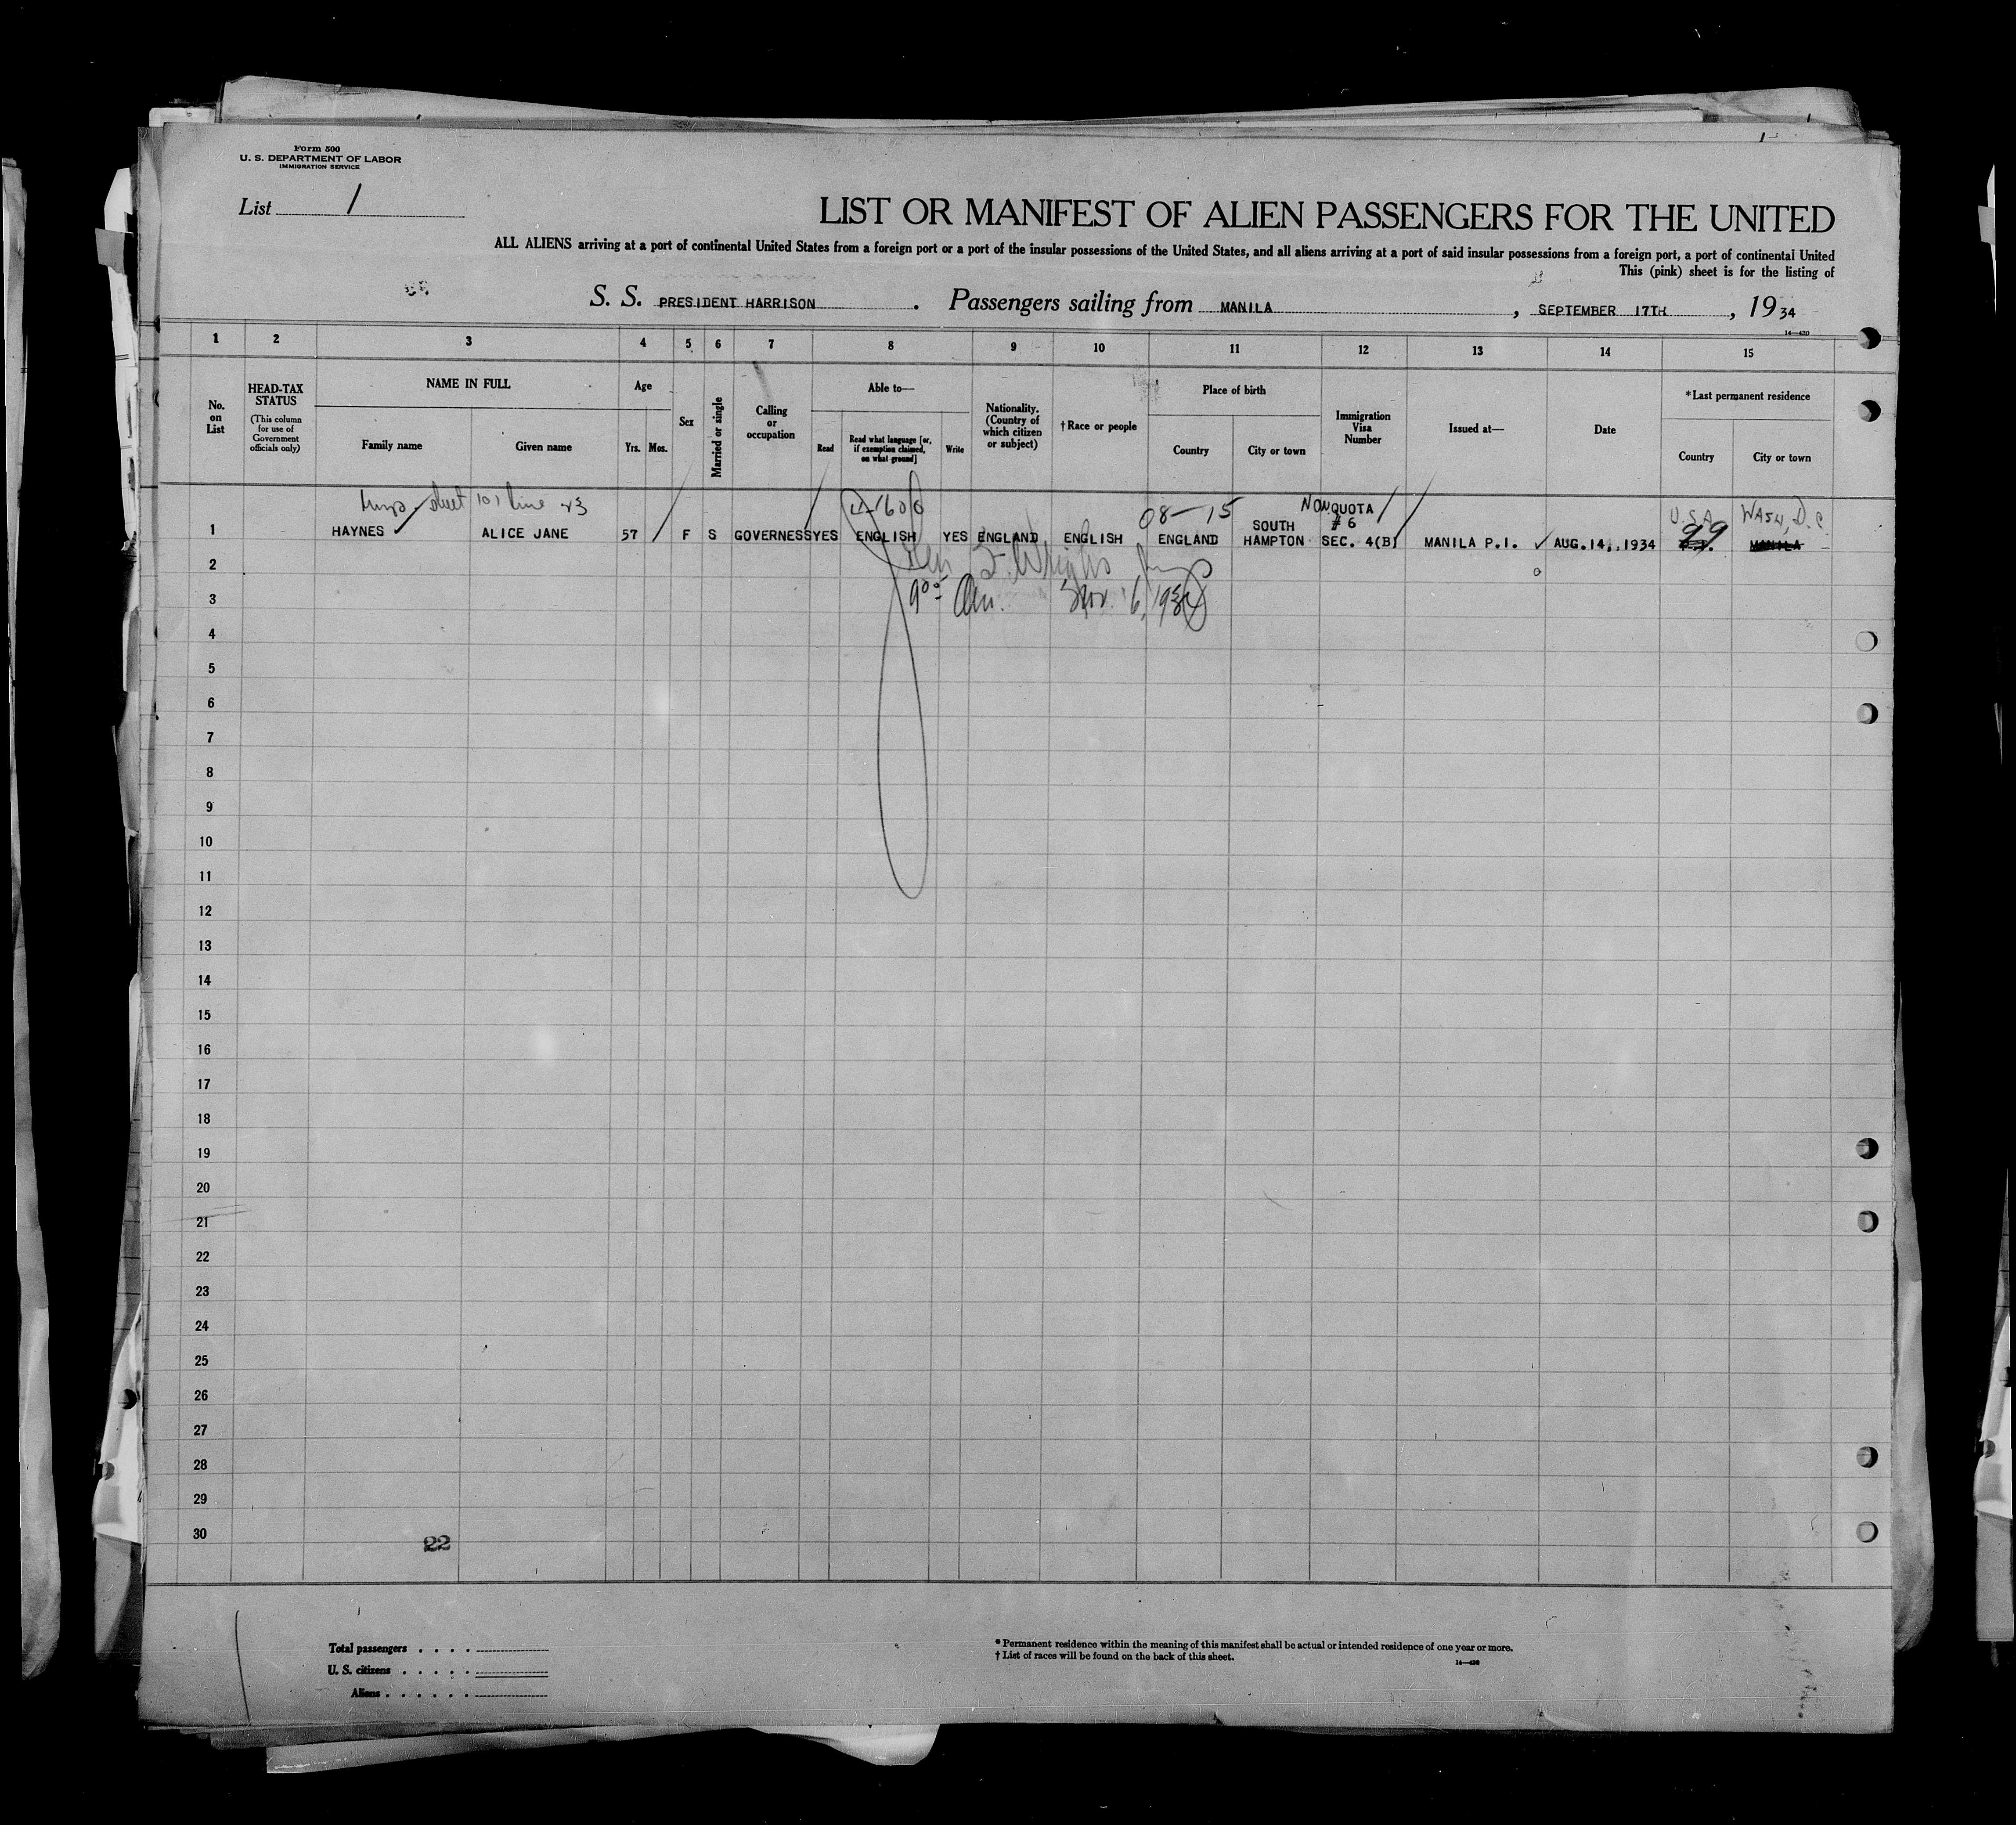 Form 500
U. S. DEPARTMENT OF LABOR
IMMIGRATION SERVICE
List 1
LIST OR MANIFEST OF ALIEN PASSENGERS FOR THE UNITED
ALL ALIENS arriving at a port of continental United States from a foreign port or a port of the insular possessions of the United States, and all aliens arriving at a port of said insular possessions from a foreign port, a port of continental United
This (pink) sheet is for the listing of
S. S. PRESIDENT HARRISON . Passengers sailing from MANILA , SEPTEMBER 17TH , 1934
14—430
1 2 3 4 5 6 7 8 9 10 11 12 13 14 15
No. on List
HEAD-TAX STATUS
(This column for use of Government officials only)
NAME IN FULL
Family name
Given name
Age
Yrs.
Mos.
Sex
Married or single
Calling or occupation
Able to—
Read
Read what language [or, if exemption claimed, on what ground]
Write
Nationality. (Country of which citizen or subject)
† Race or people
Place of birth
Country
City or town
Immigration Visa Number
Issued at—
Date
*Last permanent residence
Country
City or town
sheet 101 line 23
08—15
NONQUOTA
# 6
U.S.A. WASH, D.C
99
1 HAYNES ALICE JANE 57 F S GOVERNESS YES ENGLISH YES ENGLAND ENGLISH ENGLAND SOUTH HAMPTON SEC. 4(B) MANILA P.I. ✓ AUG.14,.1934 MANILA
2
3 Nov. 6, 1934
4
5
6
7
8
9
10
11
12
13
14
15
16
17
18
19
20
21
22
23
24
25
26
27
28
29
30
22
Total passengers . . . .
U. S. citizens . . . . .
Aliens . . . . . .
* Permanent residence within the meaning of this manifest shall be actual or intended residence of one year or more.
† List of races will be found on the back of this sheet.
14—430